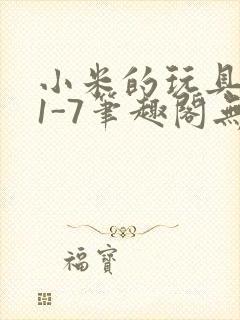 小米的玩具
1-7筆趣閣無
福寶